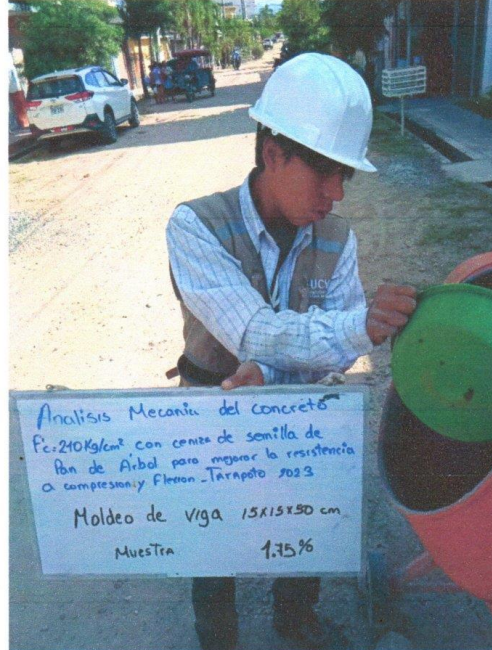 UCV
Analisis Mecanic del concreto
f'c=210Kg/cm² con ceniza de semilla de
Pan de Árbol para mejorar la resistencia
a compresion y Flexion - Tarapoto 2023
Moldeo de viga 15x15x50 cm
Muestra 1.75%